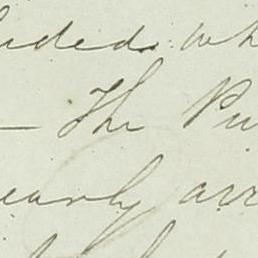 uded wh
— The Pu
early arr